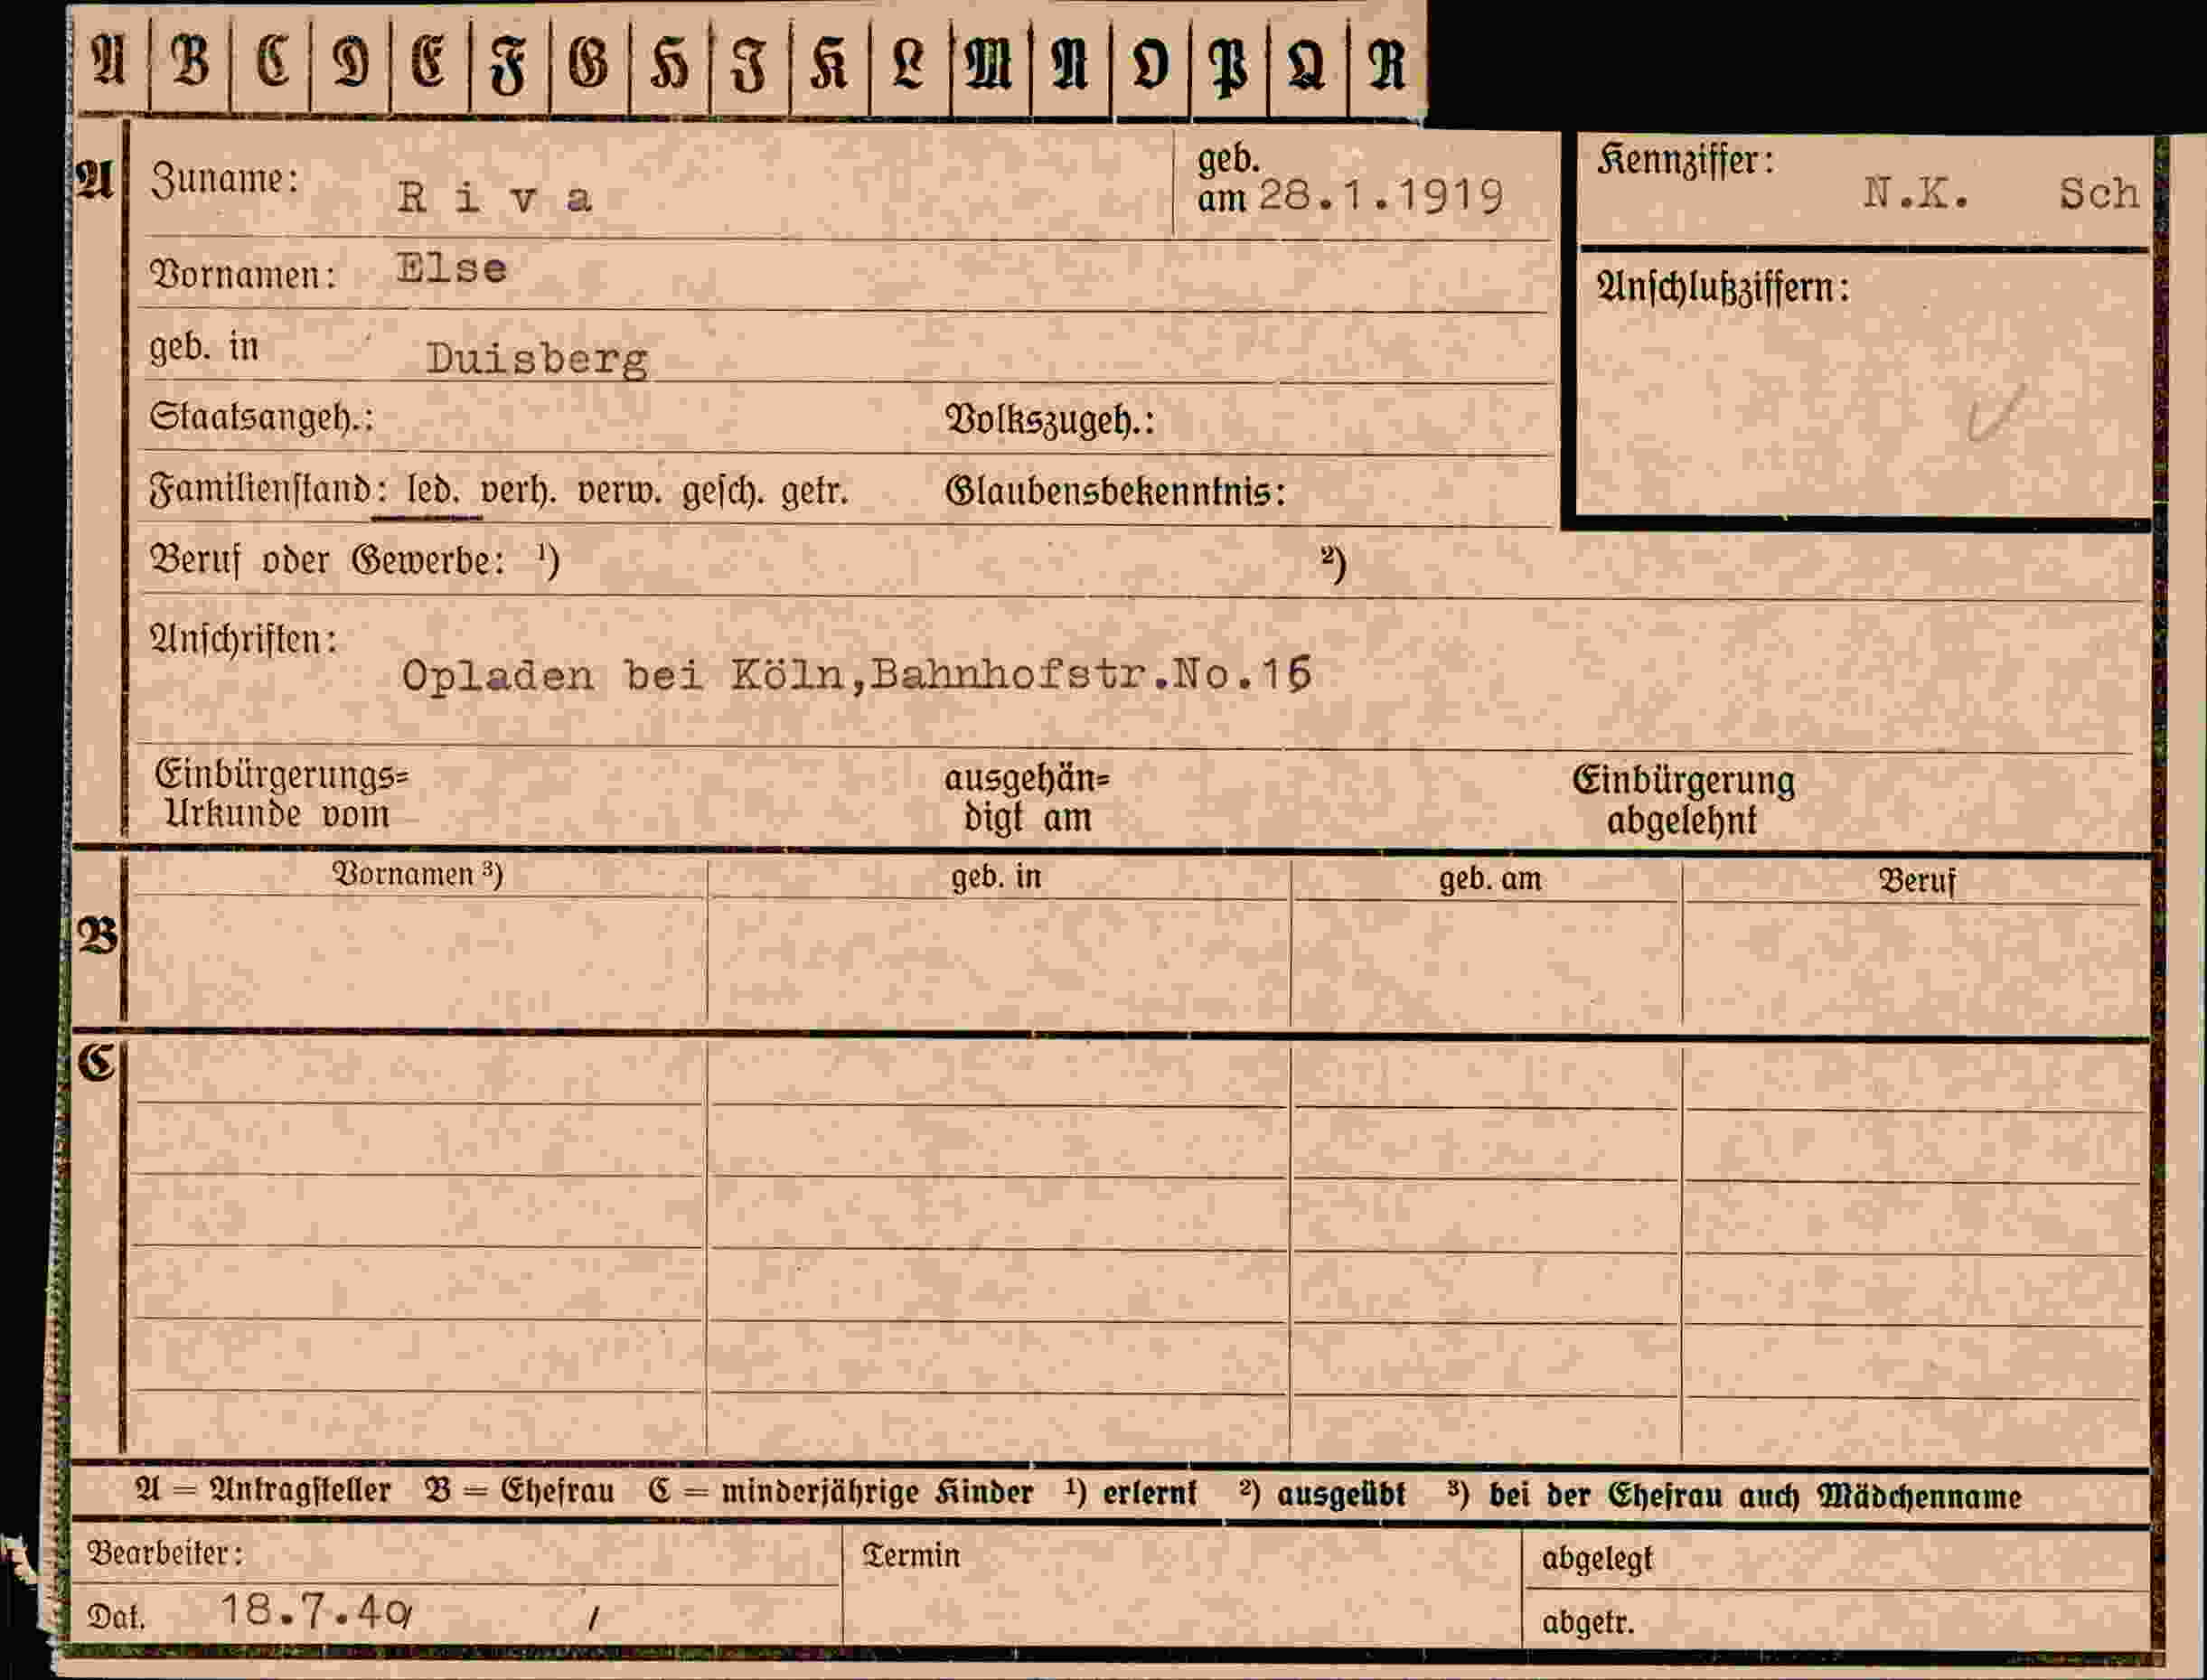 A B C D E F G H I K L M N O P Q R
A Zuname: Riva geb. am 28.1.1919 Kennziffer: N.K. Sch
Vornamen: Else Anschlußziffern:
geb. in Duisberg
Staatsangeh.: Volkszugeh.:
Familienstand: led. verh. verw. gesch. getr. Glaubensbekenntnis:
Beruf oder Gewerbe: ¹) ²)
Anschriften:
Opladen bei Köln,Bahnhofstr.No.16
Einbürgerungs= ausgehän= Einbürgerung
Urkunde vom digt am abgelehnt
Vornamen ³) geb. in geb. am Beruf
B
C
A = Antragsteller B = Ehefrau C = minderjährige Kinder ¹) erlernt ²) ausgeübt ³) bei der Ehefrau auch Mädchenname
Bearbeiter: Termin abgelegt
Dat. 18.7.40 / abgetr.